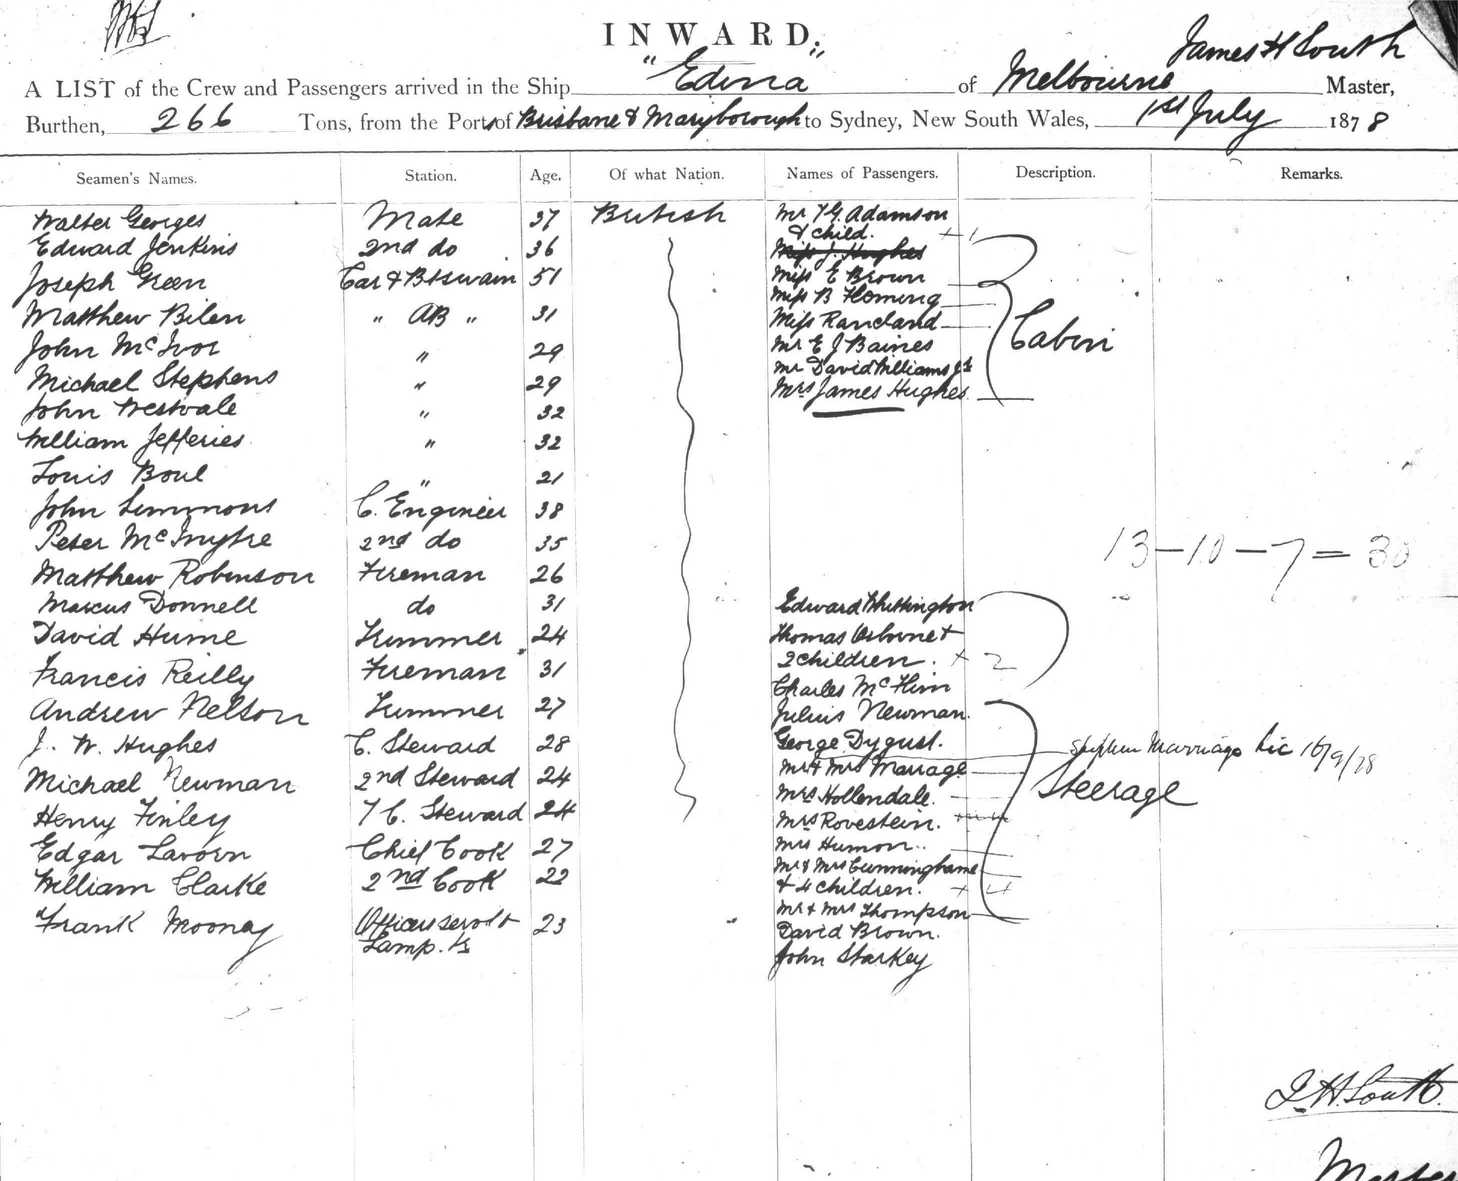 INWARD.
James H South
A LIST of the Crew and Passengers arrived in the Ship "Edina" of Melbourne Master,
Burthen, 266 Tons, from the Port of Brisbane & Maryborough to Sydney, New South Wales, 1st July 1878
Seamen's Names. Station. Age. Of what Nation. Names of Passengers. Description. Remarks.
Walter Georges Mate 37 British Mr T G. Adamson
& child. + 1
Edward Jenkins 2nd do 36 Miss J. Hughes
Joseph Green Car & Btswain 51 Miss E Brown
Miss B Fleming
Matthew Bilen " AB " 31 Miss Rancland Cabin
John McIvor " 29 Mr E J Baines
Mr David Williams Jr
Michael Stephens " 29 Mrs James Hughes
John Westvale " 32
William Jefferies " 32
Louis Boul " 21
John Simmons C. Engineer 38
Peter McIntyre 2nd do 35 13-10-7=30
Matthew Robinson Fireman 26
Marcus Donnell do 31 Edward Whittington
David Hume Trimmer 24 Thomas Osborne &
2 children. + 2
Francis Reilly Fireman 31 Charles McFlinn
Andrew Nelson Trimmer 27 Julius Newman.
J. W. Hughes C. Steward 28 George Dygust. Stephen Marriage Lic 16/9/78
Mr & Mrs Marriage
Michael Newman 2nd Steward 24 Mrs Hollendale. Steerage
Henry Finley F C. Steward 24 Mrs Rovestein.
Edgar Lavorn Chief Cook 27 Mrs Humon.
Mr & Mrs Cunninghame
William Clarke 2nd Cook 22 & 4 children. + 4
Mr & Mrs Thompson
Frank Mooney Officers servt & 23 David Brown.
Lamp. Tr John Starkey
J. H. South.
Master